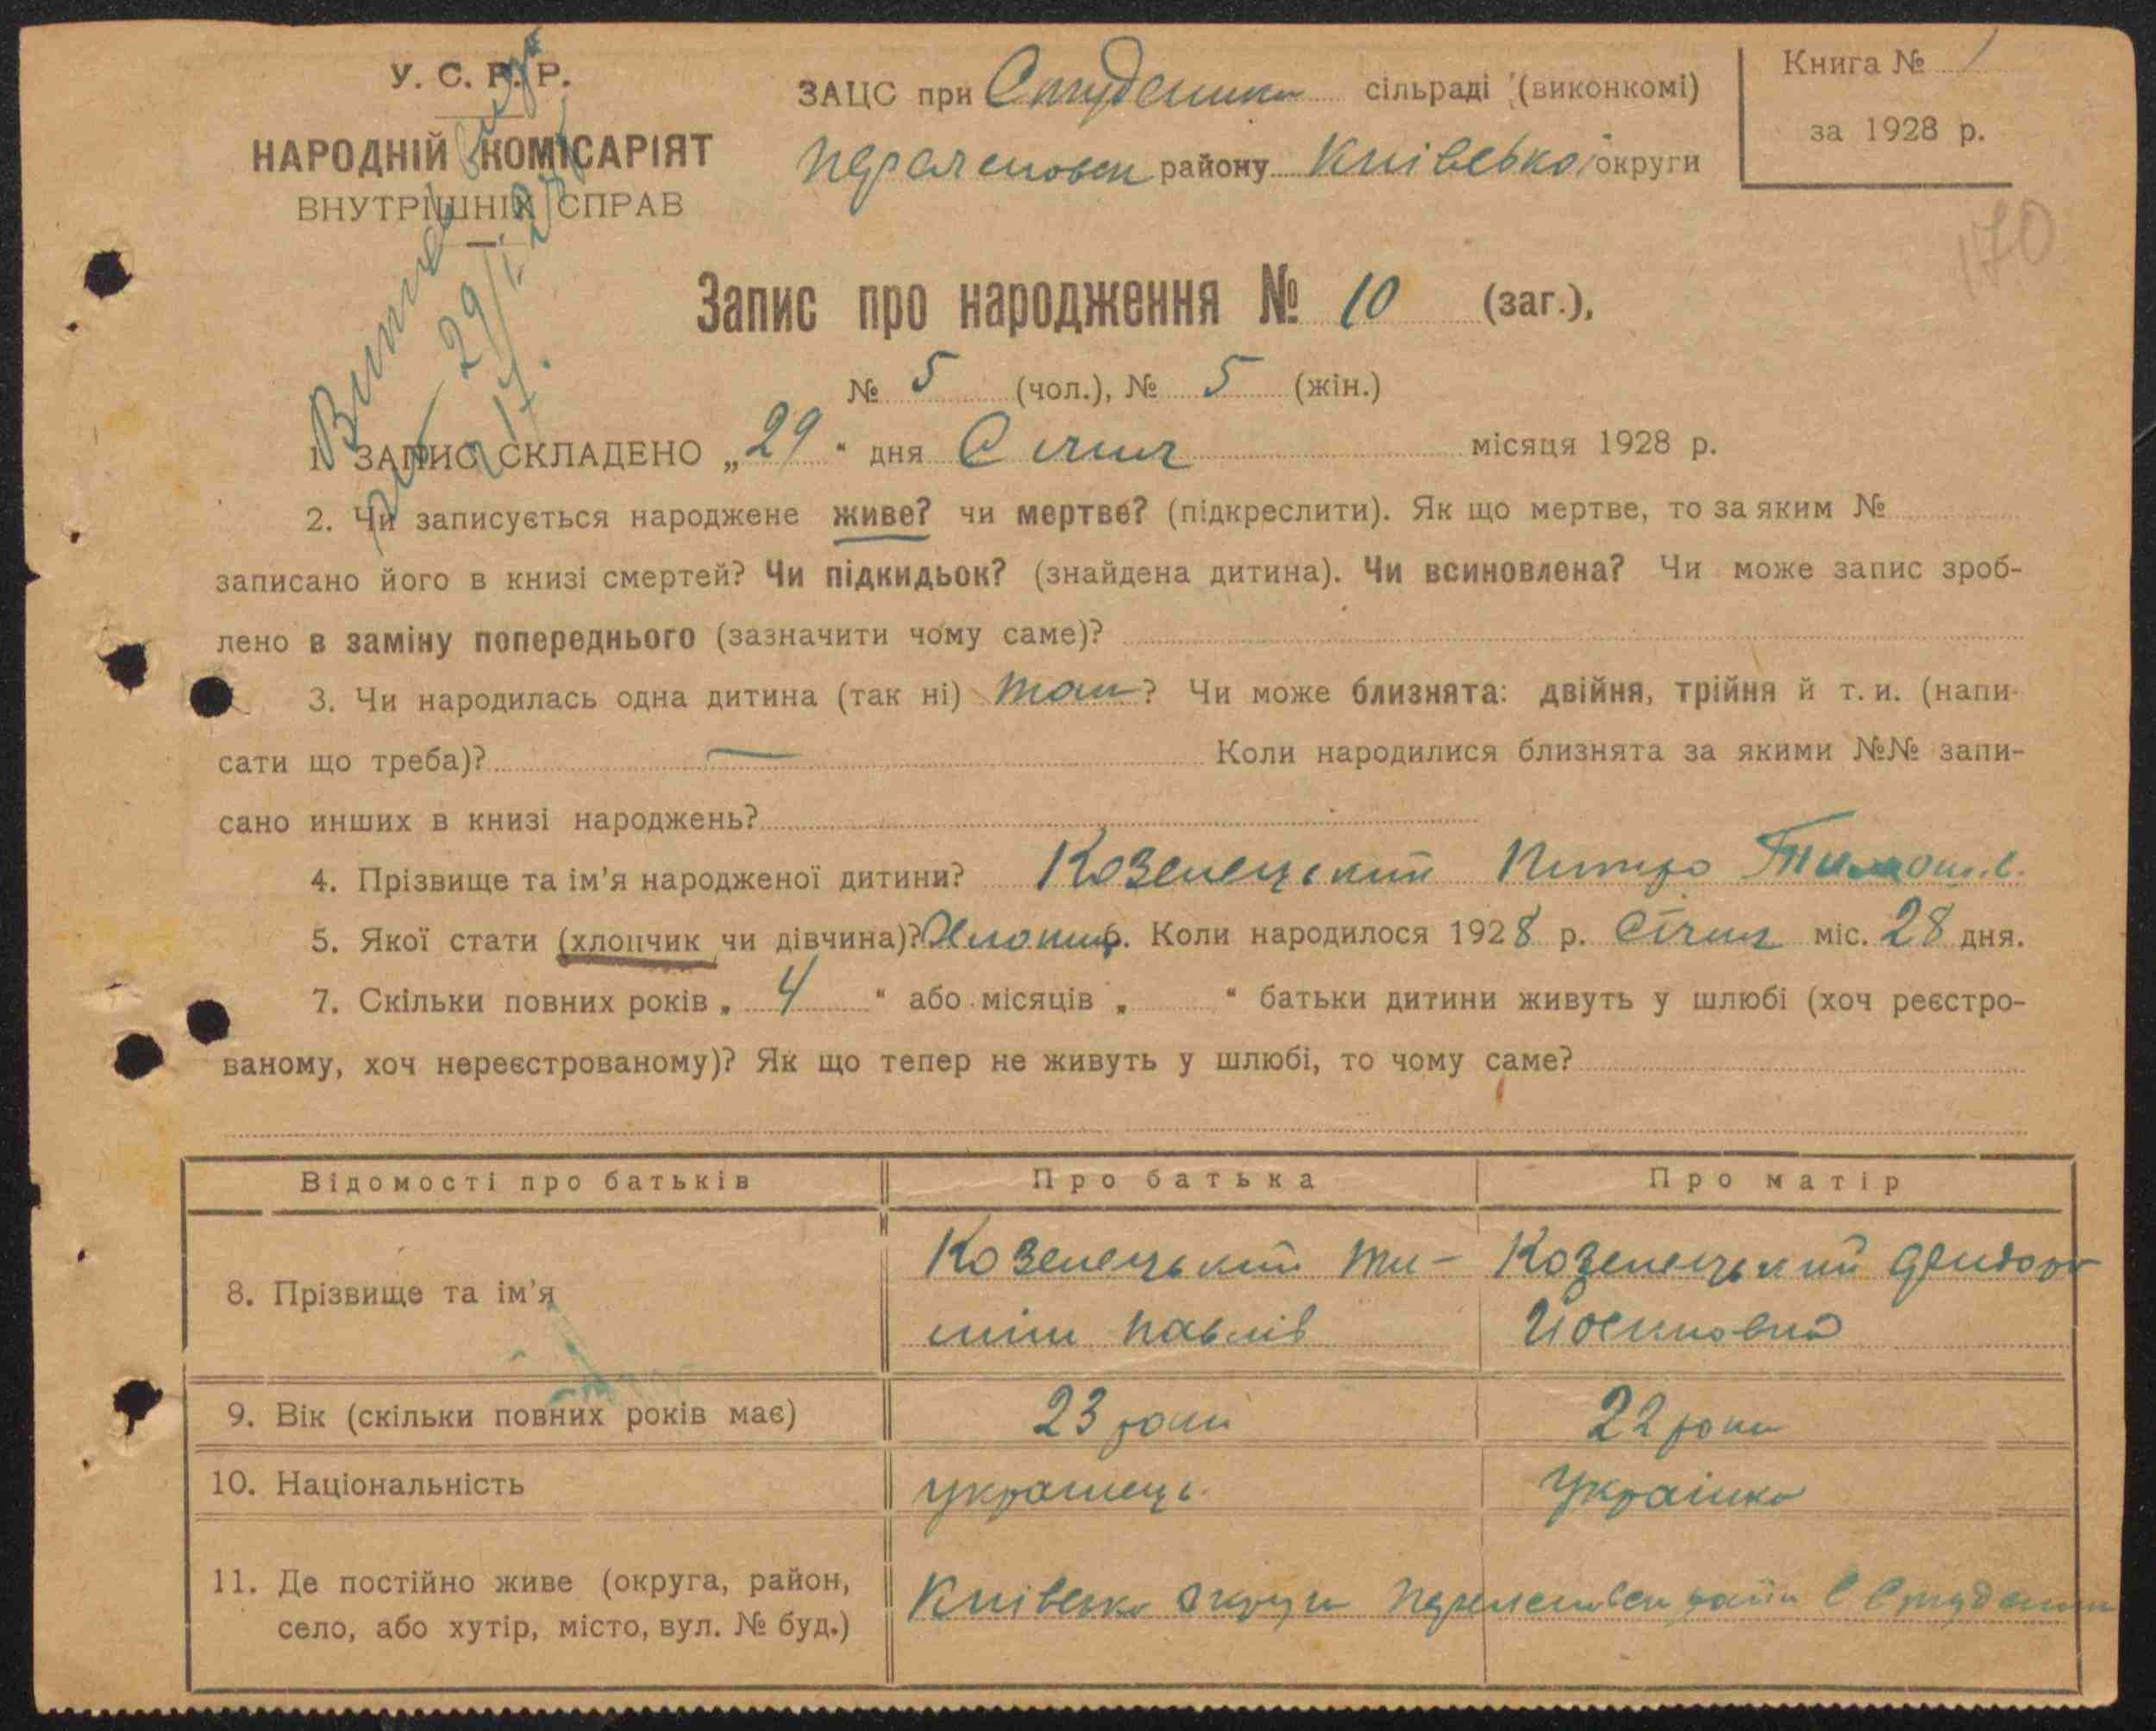 У. С. Р. Р.
НАРОДНІЙ КОМІСАРІЯТ
ВНУТРІШНІХ СПРАВ
ЗАЦС при Студеники сільраді (виконкомі)
району Київсько округи
Книга № 1
за 1928 р.
170
29/I 28
Запис про народження № 10 (заг.),
№ 5 (чол.), № 5 (жін.)
1. ЗАПИС СКЛАДЕНО „29“ дня Січня місяця 1928 р.
2. Чи записується народжене живе? чи мертве? (підкреслити). Як що мертве, то за яким №
записано його в книзі смертей? Чи підкидьок? (знайдена дитина). Чи всиновлена? Чи може запис зроб-
лено в заміну попереднього (зазначити чому саме)?
3. Чи народилась одна дитина (так ні) так? Чи може близнята: двійня, трійня й т. и. (напи-
сати що треба)? — Коли народилися близнята за якими №№ запи-
сано инших в книзі народжень?
4. Прізвище та ім'я народженої дитини? Козенецький Тимош.
5. Якої стати (хлопчик чи дівчина)? Хлопчик 6. Коли народилося 1928 р. Січня міс. 28 дня.
7. Скільки повних років „ 4 “ або місяців „ “ батьки дитини живуть у шлюбі (хоч реєстро-
ваному, хоч нереєстрованому)? Як що тепер не живуть у шлюбі, то чому саме?
Відомості про батьків Про батька Про матір
8. Прізвище та ім'я Козенецький Ти- Козенецький
міш Павлів
9. Вік (скільки повних років має) 23 роки 22 роки
10. Національність українець Українка
11. Де постійно живе (округа, район, Київсько округи с Студеники
село, або хутір, місто, вул. № буд.)